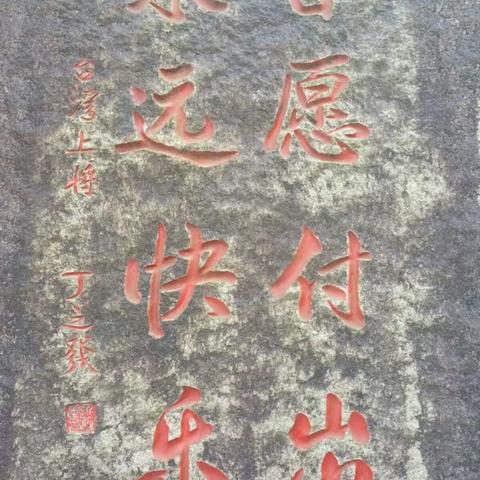 愿付
永远快乐
台湾上将 丁之發